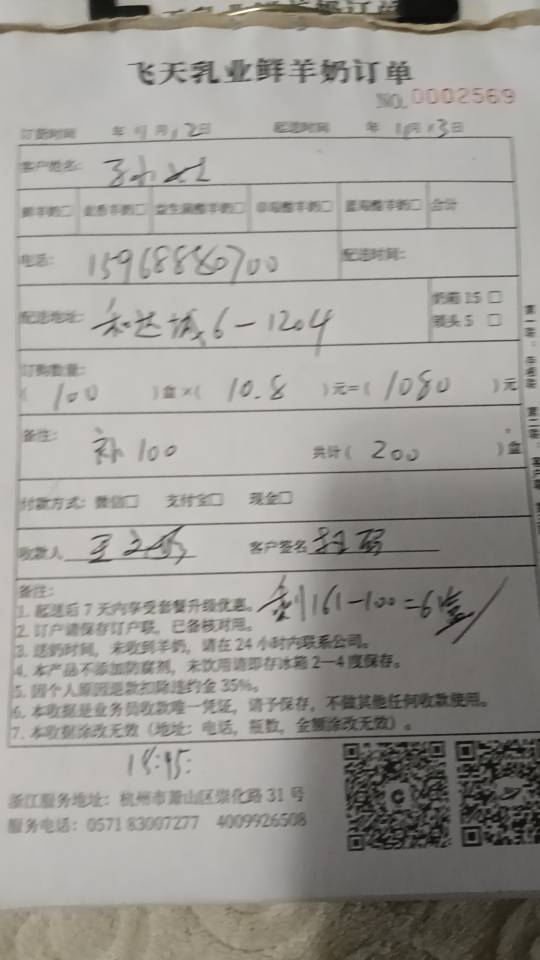 飞天乳业鲜羊奶订单
NO. 0002569
订货时间 年 月12日 起送时间 年 月13日
客户姓名:
鲜羊奶□ 益生菌酸羊奶□ 合计
电话: 15968880700 配送时间:
配送地址: 和达城6-1204 奶箱 15 □
锁头 5 □
订购数量:
( 100 )盒×( 10.8 )元=( 1080 )元
备注: 补100 共计( 200 )盒
付款方式: 微信□ 支付宝□ 现金□
收款人 客户签名
备注: 161-100=6
1. 起送后 7 天内享受套餐升级优惠。
2. 订户请保存订户联, 已备核对用。
3. 送奶时间, 未收到羊奶, 请在 24 小时内联系公司。
4. 本产品不添加防腐剂, 未饮用请即存冰箱 2—4 度保存。
5. 因个人原因退款扣除违约金 35%。
6. 本收据是业务员收款唯一凭证, 请予保存, 不做其他任何收款使用。
7. 本收据涂改无效 (地址: 电话, 瓶数, 金额涂改无效) 。
浙江服务地址: 杭州市萧山区崇化路 31 号
服务电话: 0571 83007277 4009926508